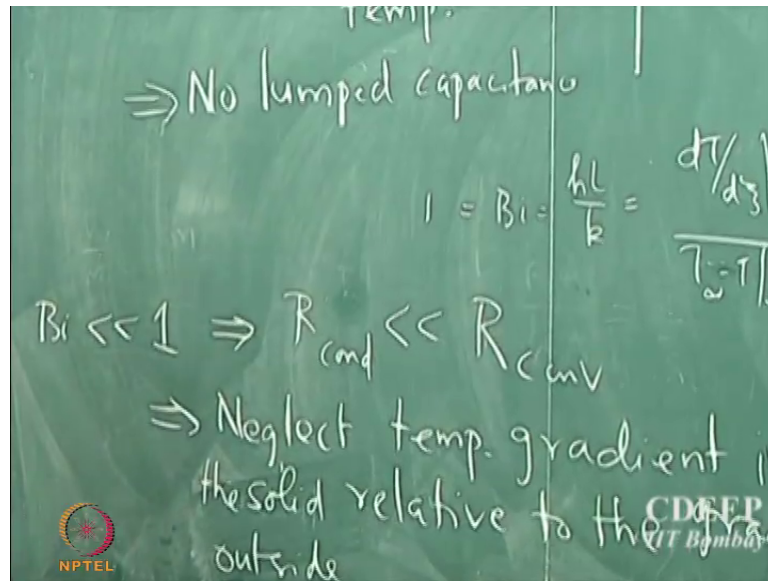 Temp.
⇒ No lumped capacitanc
1 = Bi = hL/k = dT/dz
T∞-T|
Bi << 1 ⇒ R cond << R conv
⇒ Neglect temp. gradient i
the solid relative to the gra
outside
CDEEP
IIT Bombay
NPTEL